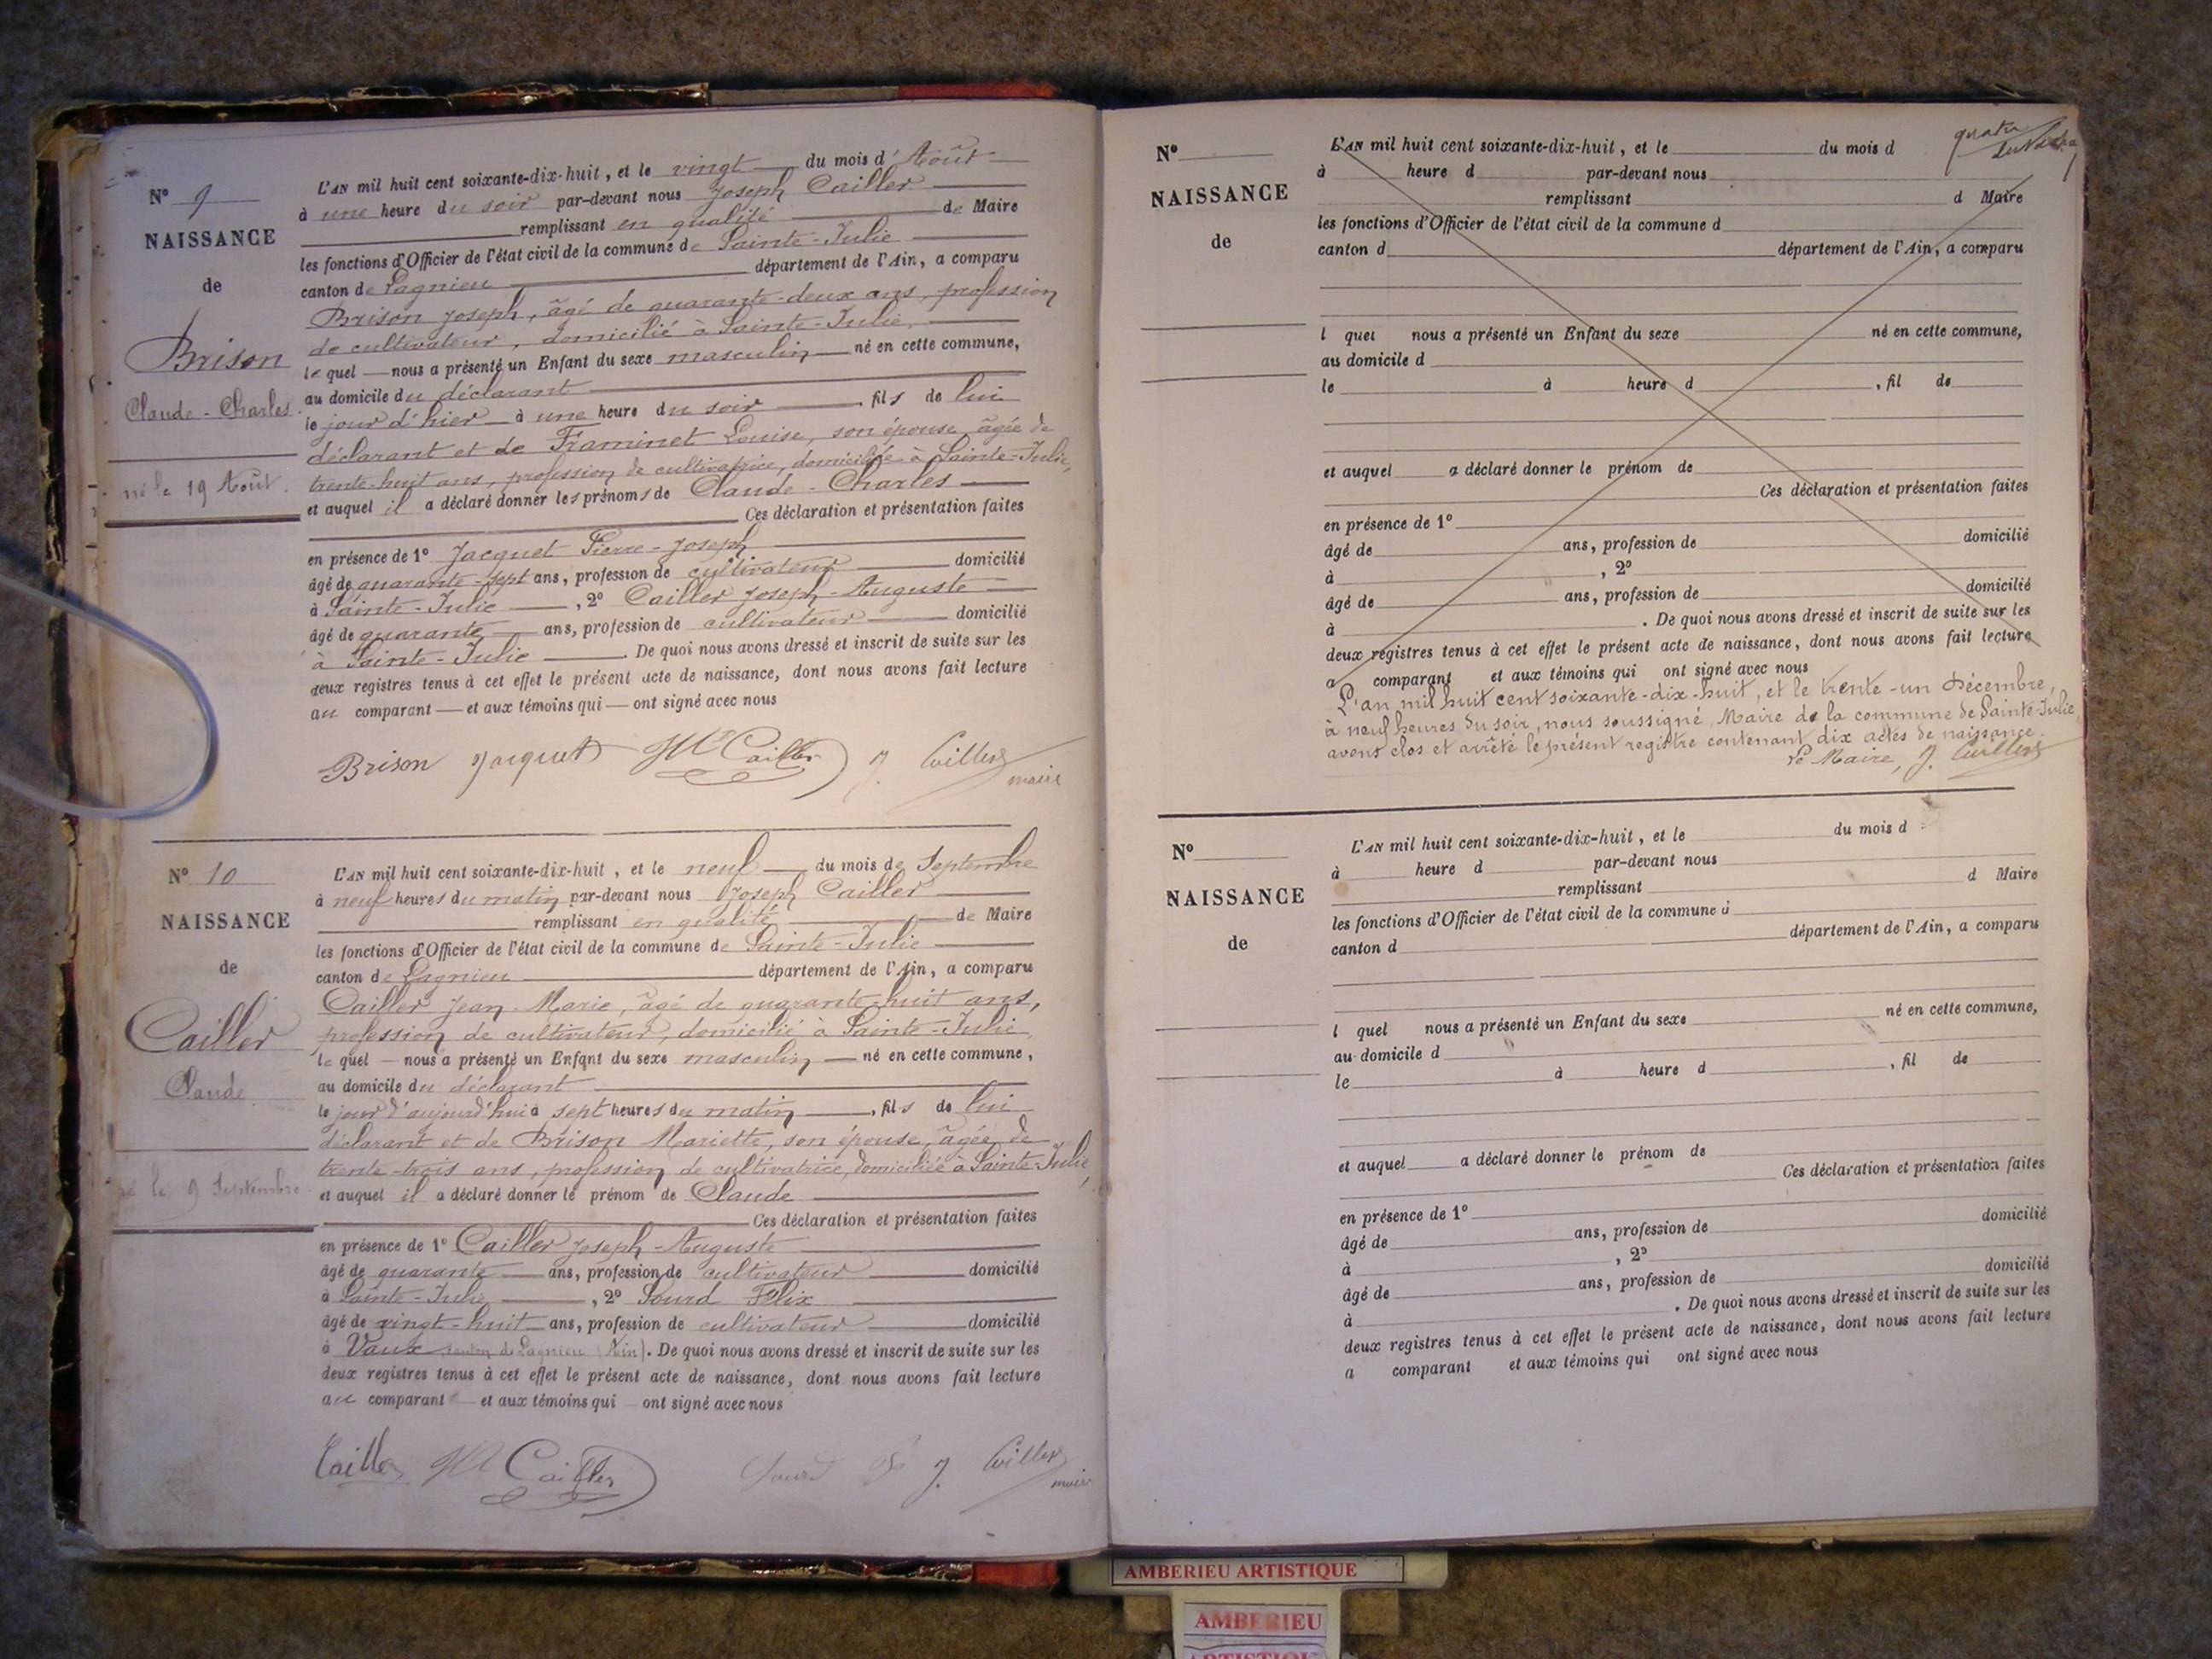 N° 9
NAISSANCE
de
Brison
Claude-Charles
né le 19 Août.
L'AN mil huit cent soixante-dix-huit, et le vingt du mois d'Août
à une heure du soir par-devant nous Joseph Cailler
remplissant en qualité de Maire
les fonctions d'Officier de l'état civil de la commune de Sainte-Julie
canton de Lagnieu département de l'Ain, a comparu
Brison Joseph, âgé de quarante-deux ans, profession
de cultivateur, domicilié à Sainte-Julie,
lequel nous a présenté un Enfant du sexe masculin né en cette commune,
au domicile du déclarant
le jour d'hier à une heure du soir, fils de lui
déclarant et de Framinet Louise, son épouse, âgée de
trente-huit ans, profession de cultivatrice, domiciliée à Sainte-Julie,
et auquel il a déclaré donner les prénoms de Claude-Charles
Ces déclaration et présentation faites
en présence de 1° Jacquet Pierre-Joseph
âgé de quarante-sept ans, profession de cultivateur domicilié
à Sainte-Julie, 2° Cailler Joseph-Auguste
âgé de quarante ans, profession de cultivateur domicilié
à Sainte-Julie. De quoi nous avons dressé et inscrit de suite sur les
deux registres tenus à cet effet le présent acte de naissance, dont nous avons fait lecture
au comparant et aux témoins qui ont signé avec nous
Brison Jacquet Cailler J. Cailler
maire
N° 10
NAISSANCE
de
Cailler
Claude
né le 9 Septembre
L'AN mil huit cent soixante-dix-huit, et le neuf du mois de Septembre
à neuf heures du matin par-devant nous Joseph Cailler
remplissant en qualité de Maire
les fonctions d'Officier de l'état civil de la commune de Sainte-Julie
canton de Lagnieu département de l'Ain, a comparu
Cailler Jean-Marie, âgé de quarante-huit ans,
profession de cultivateur, domicilié à Sainte-Julie
lequel nous a présenté un Enfant du sexe masculin né en cette commune,
au domicile du déclarant
le jour d'aujourd'hui à sept heures du matin, fils de lui
déclarant et de Brison Mariette, son épouse, âgée de
trente-trois ans, profession de cultivatrice, domiciliée à Sainte-Julie,
et auquel il a déclaré donner le prénom de Claude
Ces déclaration et présentation faites
en présence de 1° Cailler Joseph-Auguste
âgé de quarante ans, profession de cultivateur domicilié
à Sainte-Julie, 2° Sourd Félix
âgé de vingt-huit ans, profession de cultivateur domicilié
à Vaux canton de Lagnieu (Ain). De quoi nous avons dressé et inscrit de suite sur les
deux registres tenus à cet effet le présent acte de naissance, dont nous avons fait lecture
au comparant et aux témoins qui ont signé avec nous
Cailler Cailler Sourd J. Cailler
maire
N°
NAISSANCE
de
L'AN mil huit cent soixante-dix-huit, et le du mois d
à heure d par-devant nous
remplissant d Maire
les fonctions d'Officier de l'état civil de la commune d
canton d département de l'Ain, a comparu
l quel nous a présenté un Enfant du sexe né en cette commune,
au domicile d
le à heure d, fil de
et auquel a déclaré donner le prénom de
Ces déclaration et présentation faites
en présence de 1°
âgé de ans, profession de domicilié
à, 2°
âgé de ans, profession de domicilié
à. De quoi nous avons dressé et inscrit de suite sur les
deux registres tenus à cet effet le présent acte de naissance, dont nous avons fait lecture
a comparant et aux témoins qui ont signé avec nous
L'an mil huit cent soixante-dix-huit, et le trente-un Décembre,
à neuf heures du soir, nous soussigné, Maire de la commune de Sainte-Julie,
avons clos et arrêté le présent registre contenant dix actes de naissance.
Le Maire, J. Cailler
N°
NAISSANCE
de
L'AN mil huit cent soixante-dix-huit, et le du mois d
à heure d par-devant nous
remplissant d Maire
les fonctions d'Officier de l'état civil de la commune d
canton d département de l'Ain, a comparu
l quel nous a présenté un Enfant du sexe né en cette commune,
au domicile d
le à heure d, fil de
et auquel a déclaré donner le prénom de
Ces déclaration et présentation faites
en présence de 1°
âgé de ans, profession de domicilié
à, 2°
âgé de ans, profession de domicilié
à. De quoi nous avons dressé et inscrit de suite sur les
deux registres tenus à cet effet le présent acte de naissance, dont nous avons fait lecture
a comparant et aux témoins qui ont signé avec nous
AMBERIEU ARTISTIQUE
AMBERIEU
ARTISTIQUE